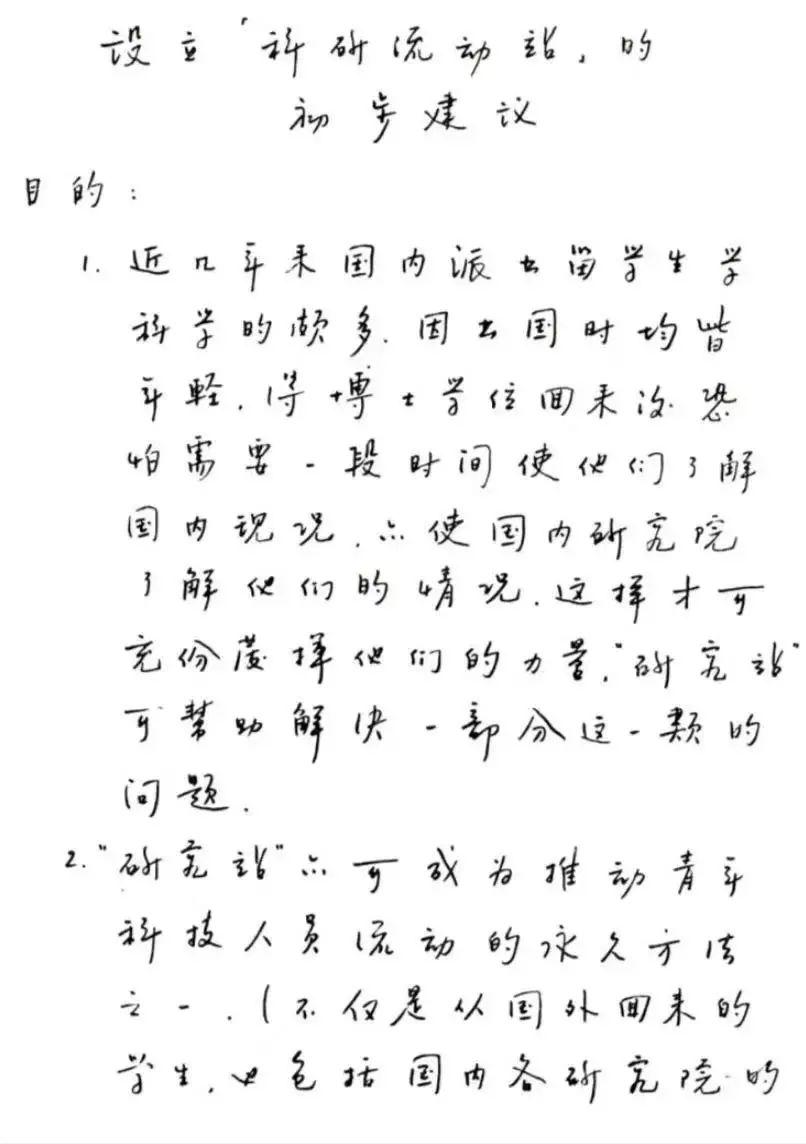 设立“科研流动站”的
初步建议
目的:
1. 近几年来国内派出留学生学
科学的颇多.因出国时均皆
年轻.得博士学位回来后恐
怕需要一段时间使他们了解
国内现况.亦使国内研究院
了解他们的情况.这样才可
充份发挥他们的力量.“研究站”
可帮助解决一部分这一类的
问题.
2. “研究站”亦可成为推动青年
科技人员流动的永久方法
之一.(不仅是从国外回来的
学生.也包括国内各研究院的